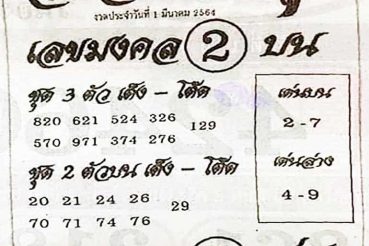 งวดประจำวันที่ 1 มีนาคม 2564
เลขมงคล 2 บน
ชุด 3 ตัว เต็ง - โต๊ด
820 621 524 326
129
570 971 374 276
ชุด 2 ตัวบน เต็ง - โต๊ด
20 21 24 26
29
70 71 74 76
เด่นบน
2-7
เด่นล่าง
4-9